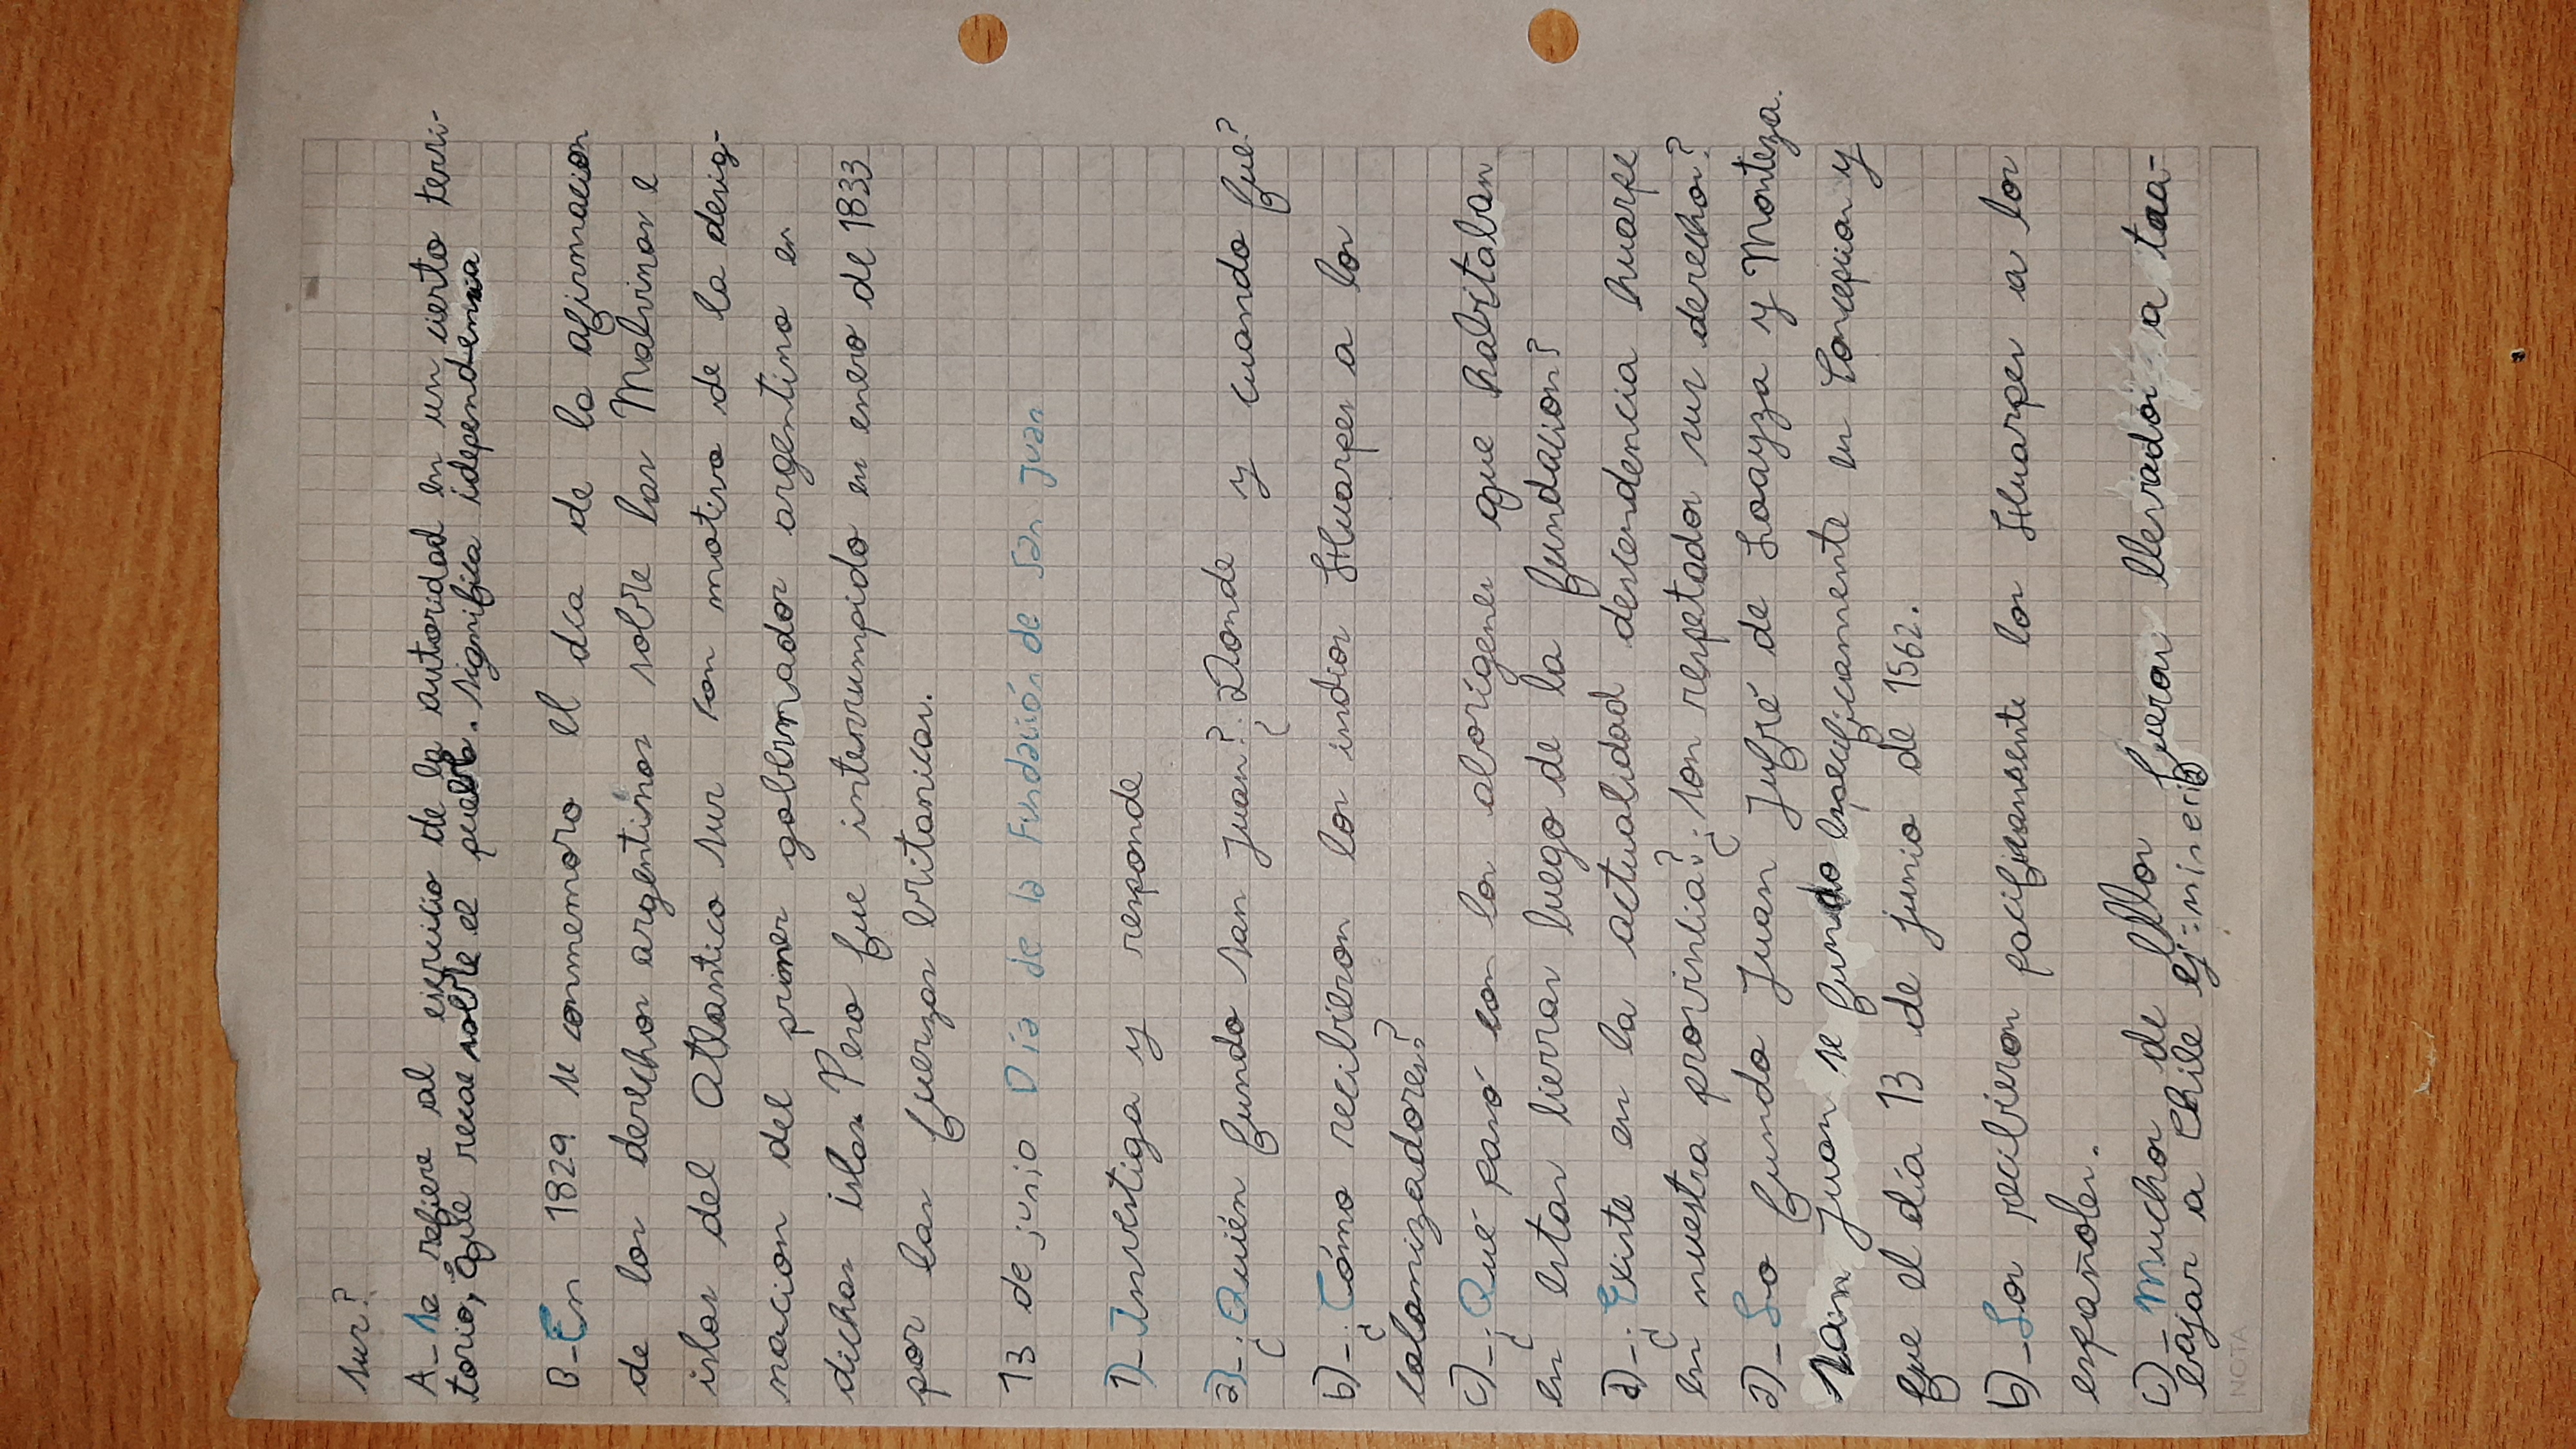 sur?
A_ se refiere al ejercicio de la autoridad en un cierto terri-
torio, que recae sobre el pueblo. significa idependencia
B_ En 1829 se conmemoro el dia de la afirmacion
de los derechos argentinos sobre las Malvinas e
islas del Atlantico sur con motivo de la desig-
nacion del primer gobernador argentino en
dichas islas. Pero fue interrumpido en enero del 1833
por las fuerzas britanicas.
13 de junio Día de la Fundación de San Juan
1)_ Investiga y responde
a)_ ¿Quién fundo San Juan? ¿Donde y cuando fue?
b)_ ¿Cómo recibieron los indios Huarpes a los
colonizadores?
c)_ ¿Qué pasó con los aborígenes que habitaban
en estas tierras luego de la fundacion?
d)_ ¿Existe en la actualidad descendencia huarpe
en nuestra provincia? ¿son respetados sus derechos?
a)_ Lo fundo Juan Jufré de Loayza y Monteza.
San Juan se fundo especificamente en Concepcion y
fue el día 13 de junio de 1562.
b)_ Los recibieron pacificamente los Huarpes a los
españoles.
c)_ Muchos de ellos fueron llevados a tra-
bajar a Chile ej: mineria
NOTA